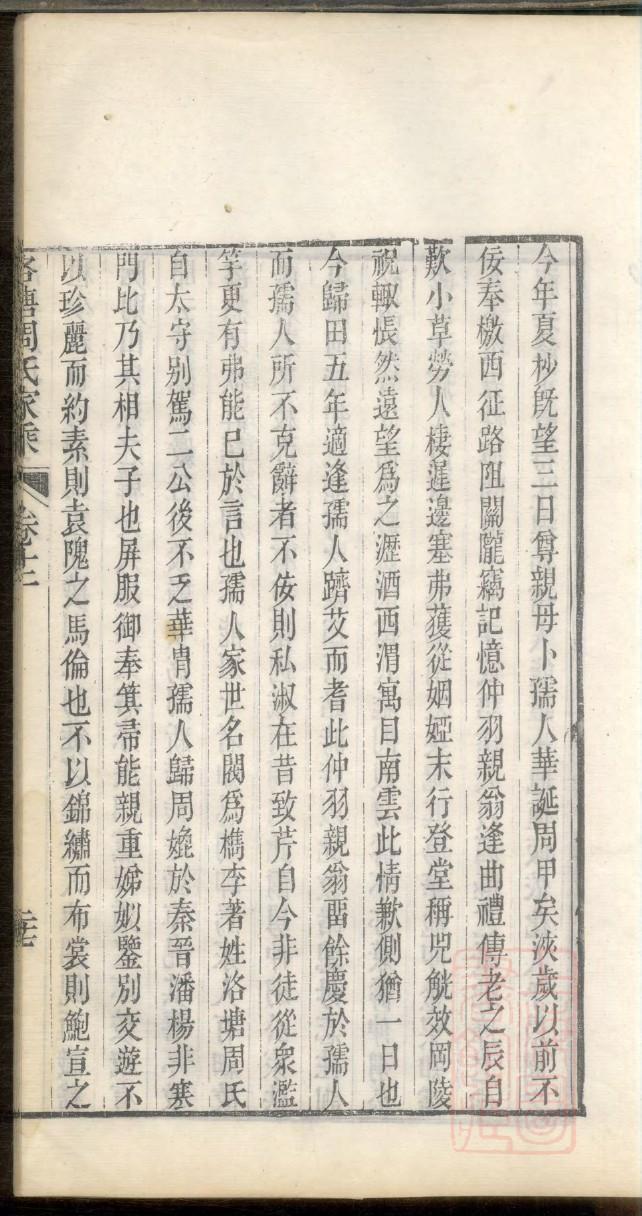 今年夏杪旣望三日尊親母卜孺人華誕周甲矣浹歲以前不
佞奉檄西征路阻關隴竊記憶仲羽親翁逢曲禮傳老之辰自
歎小草勞人棲遲邊塞弗獲從姻婭末行登堂稱兕觥效岡陵
祝輙悵然遠望爲之瀝酒西渭寓目南雲此情歉側猶一日也
今歸田五年適逢孺人躋艾而耆此仲羽親翁畱餘慶於孺人
而孺人所不克辭者不佞則私淑在昔致芹自今非徒從衆濫
竽更有弗能已於言也孺人家世名閥爲檇李著姓洛塘周氏
自太守别駕二公後不乏華冑孺人歸周媲於秦晉潘楊非寒
門比乃其相夫子也屏服御奉箕帚能親重娣姒鑒别交遊不
以珍麗而約素則袁隗之馬倫也不以錦繡而布裳則鮑宣之
洛塘周氏家乘 卷十二 二十七